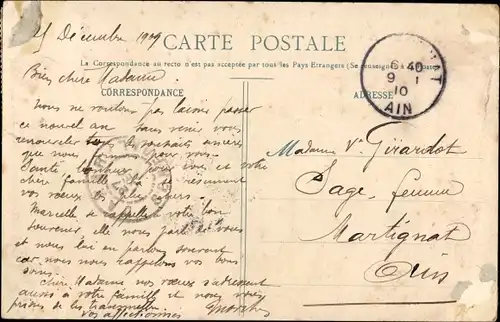 25 Décembre 1909
CARTE POSTALE
La Correspondance au recto n'est pas acceptée par tous les Pays Etrangers (Se renseigner à la Poste)
CORRESPONDANCE
ADRESSE
6 40
9 - 1
10
AIN
Bien chère Madame
Nous ne voulons pas laisser passer
ce nouvel an sans venir vous
renouveler les souhaits sincères
que nous pour vous.
Santé vivre et votre
chère famille résument
vos vœux
Marcelle se rappelle votre bon
souvenir elle nous parle de vous
et nous lui en parlons souvent
car nous nous rappelons vos bons
soins.
chère Madame nos vœux s'adressent
aussi à votre famille et nous vous
prions de les transmettre
vos affectionnés
Madame Vve Girardot
Sage femme
Martignat
Ain